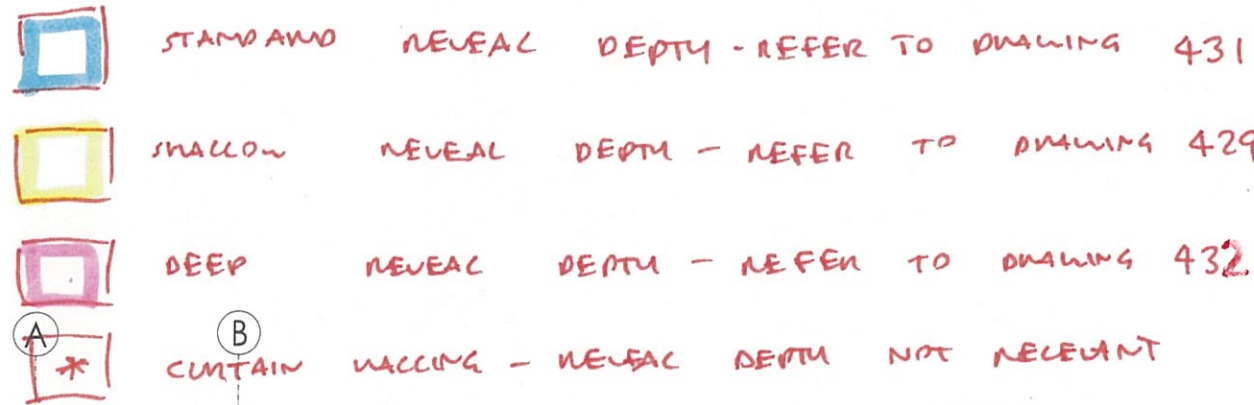 STANDARD REVEAL DEPTH - REFER TO DRAWING 431
SHALLOW REVEAL DEPTH - REFER TO DRAWING 429
DEEP REVEAL DEPTH - REFER TO DRAWING 432
A B
* CURTAIN WALLING - REVEAL DEPTH NOT RELEVANT